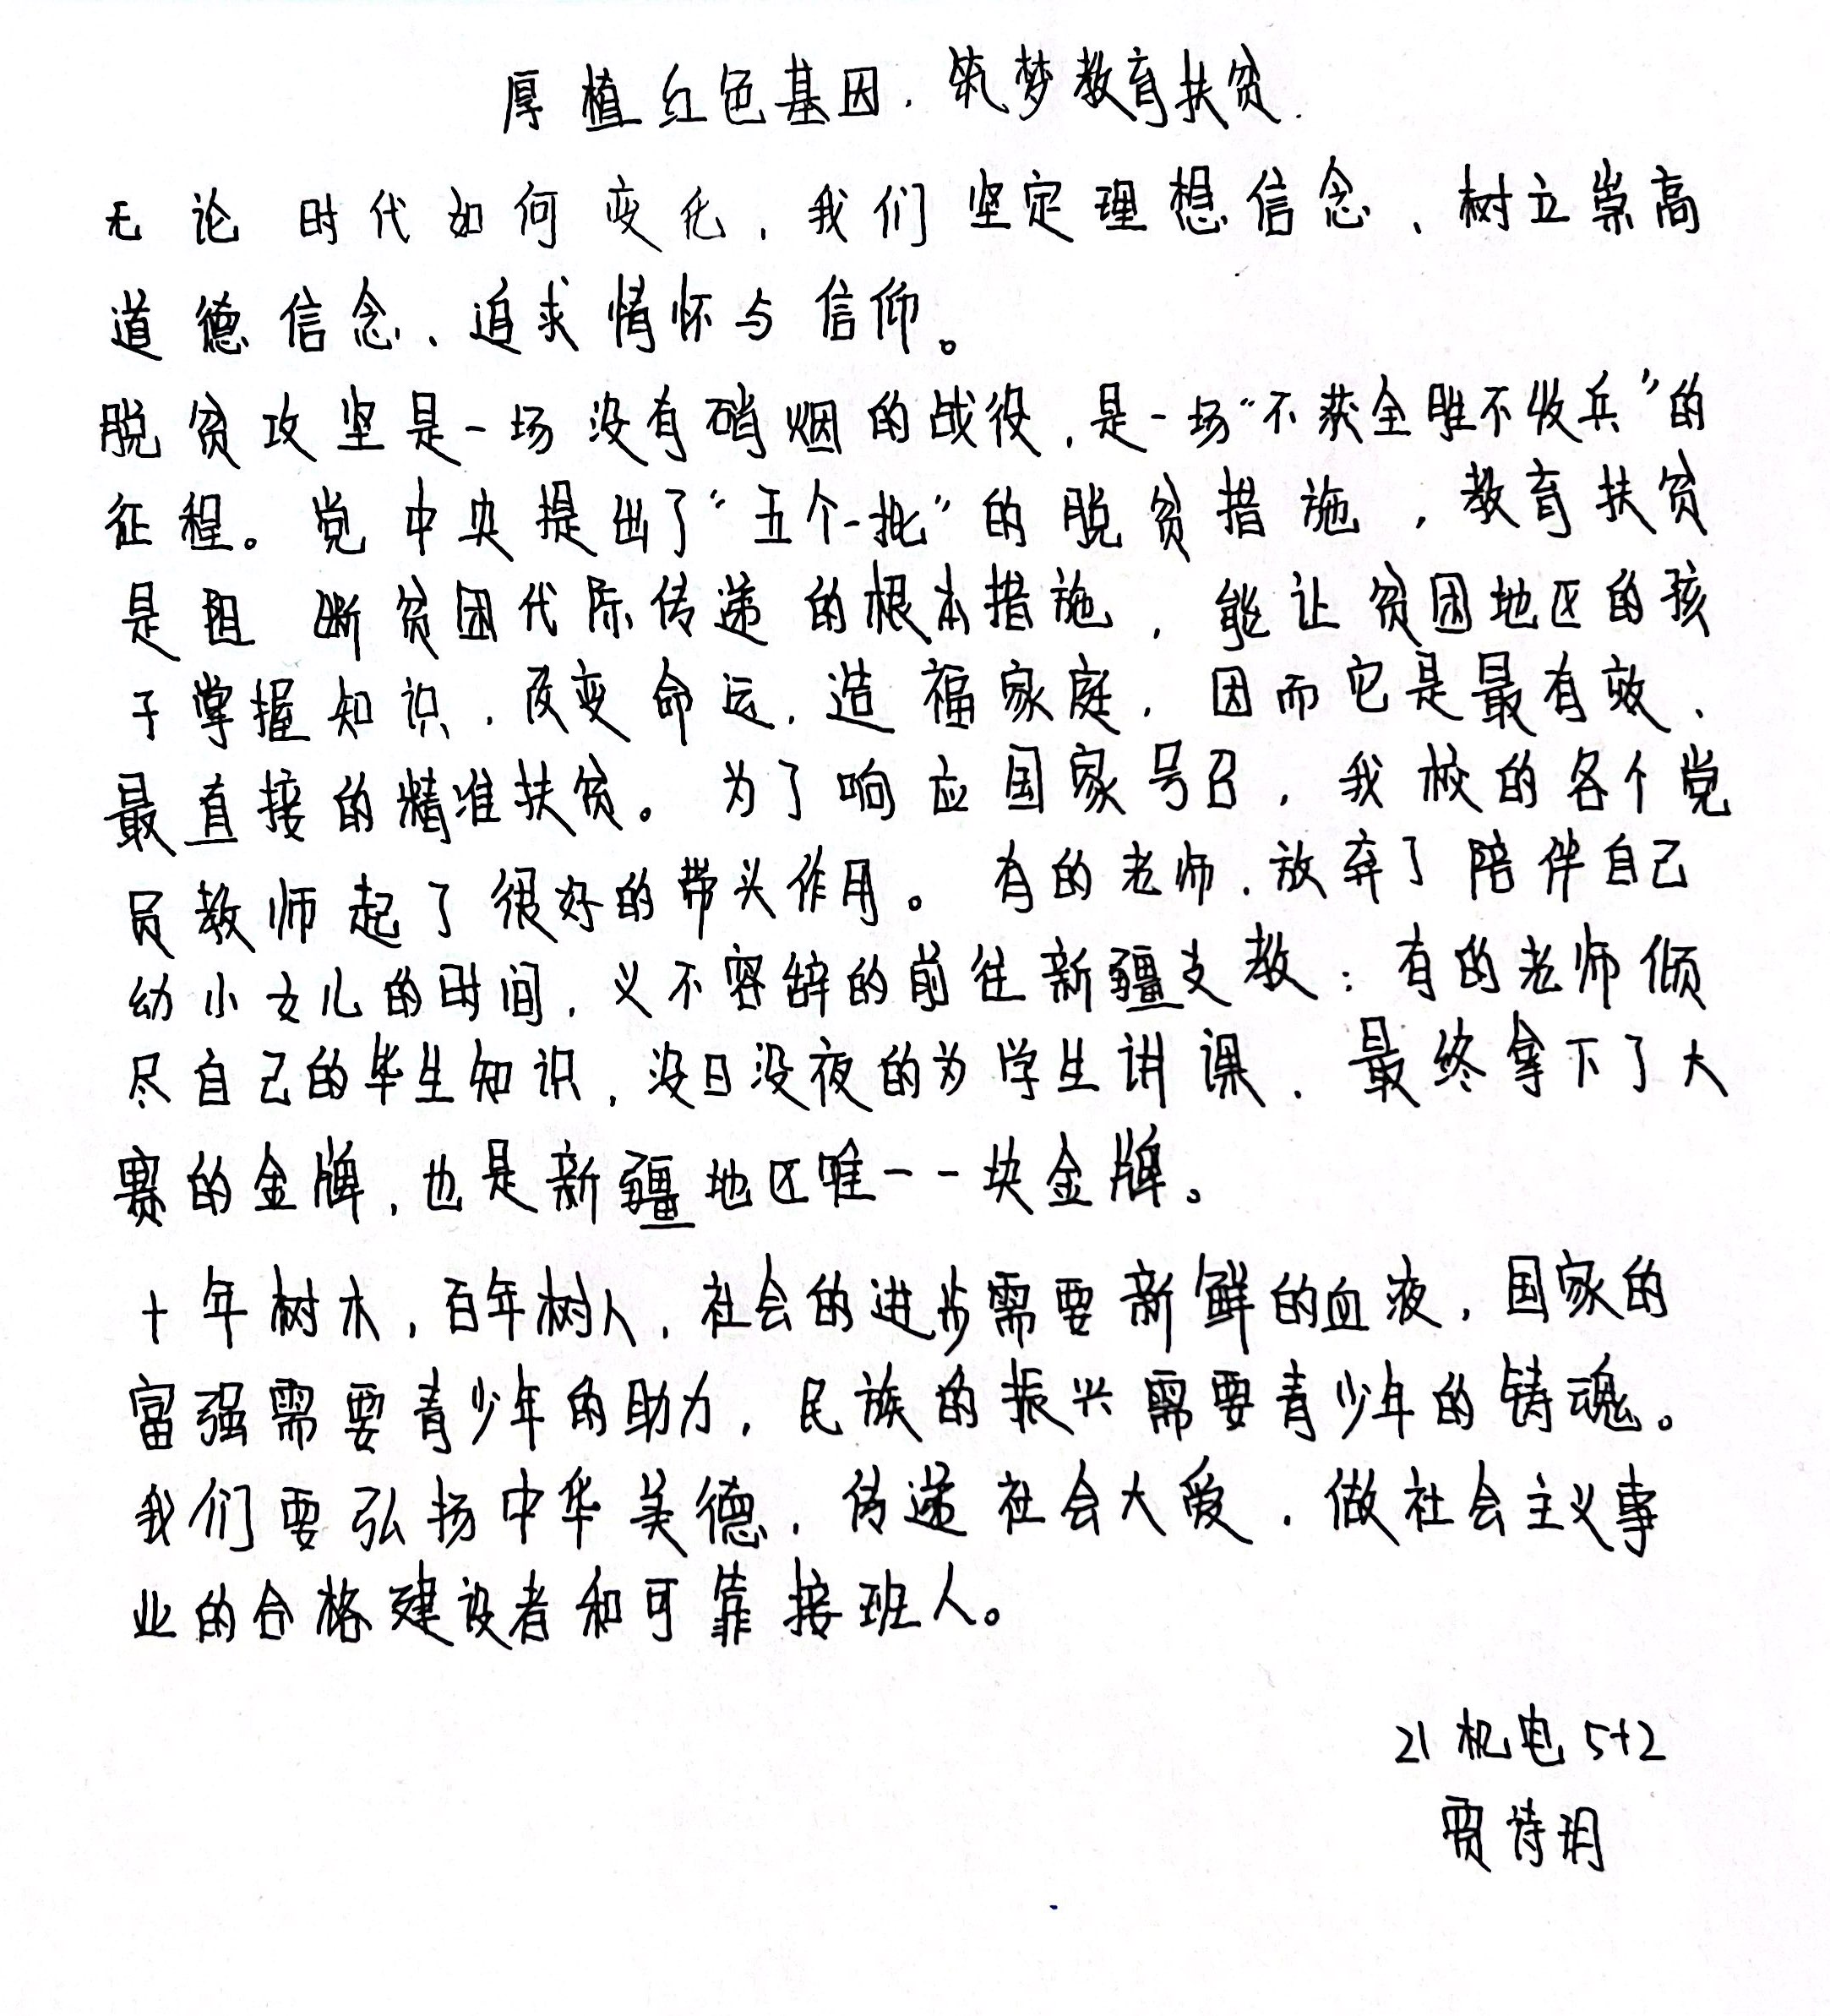 厚植红色基因,筑梦教育扶贫.
无论时代如何变化,我们坚定理想信念、树立崇高
道德信念、追求情怀与信仰。
脱贫攻坚是一场没有硝烟的战役,是一场“不获全胜不收兵”的
征程。党中央提出了“五个一批”的脱贫措施,教育扶贫
是阻断贫困代际传递的根本措施,能让贫困地区的孩
子掌握知识,改变命运,造福家庭,因而它是最有效、
最直接的精准扶贫。为了响应国家号召,我校的各个党
员教师起了很好的带头作用。有的老师,放弃了陪伴自己
幼小女儿的时间,义不容辞的前往新疆支教;有的老师倾
尽自己的毕生知识,没日没夜的为学生讲课、最终拿下了大
赛的金牌,也是新疆地区唯一一块金牌。
十年树木,百年树人,社会的进步需要新鲜的血液,国家的
富强需要青少年的助力,民族的振兴需要青少年的铸魂。
我们要弘扬中华美德,传递社会大爱,做社会主义事
业的合格建设者和可靠接班人。
21机电5+2
贾诗玥